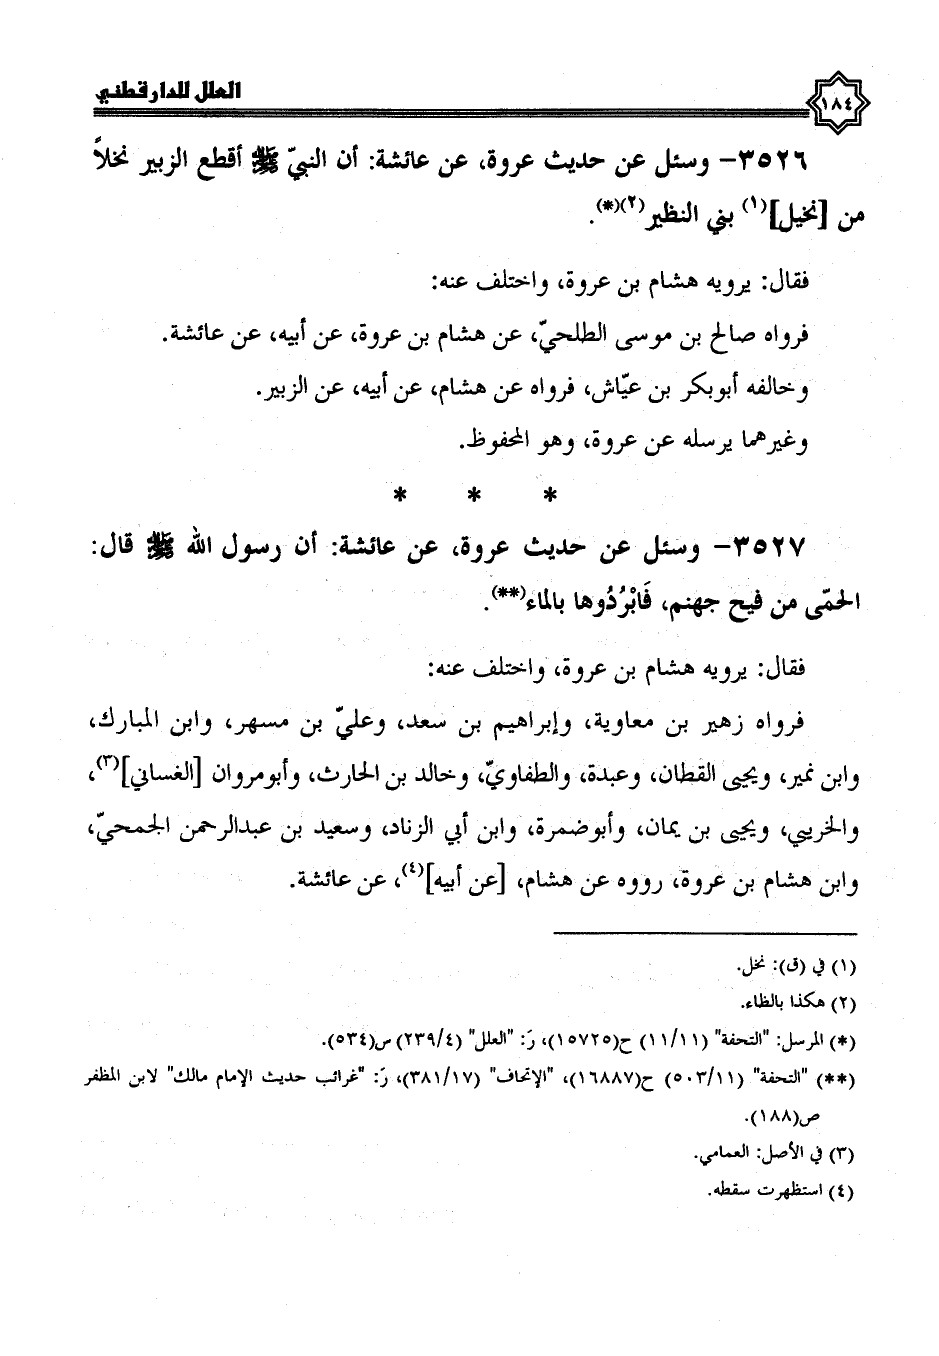 العلل للدارقطني
١٨٤
٣٥٢٦- وسئل عن حديث عروة، عن عائشة: أن النبيّ ﷺ أقطع الزبير نخلاً
من [نخيل](١) بني النظير(٢)(*).
فقال: يرويه هشام بن عروة، واختلف عنه:
فرواه صالح بن موسى الطلحيّ، عن هشام بن عروة، عن أبيه، عن عائشة.
وخالفه أبوبكر بن عيّاش، فرواه عن هشام، عن أبيه، عن الزبير.
وغيرهما يرسله عن عروة، وهو المحفوظ.
* * *
٣٥٢٧- وسئل عن حديث عروة، عن عائشة: أن رسول الله ﷺ قال:
الحمّى من فيح جهنم، فَابْرُدُوها بالماء(**).
فقال: يرويه هشام بن عروة، واختلف عنه:
فرواه زهير بن معاوية، وإبراهيم بن سعد، وعليّ بن مسهر، وابن المبارك،
وابن نمير، ويحيى القطان، وعبدة، والطفاويّ، وخالد بن الحارث، وأبومروان [الغساني](٣)،
والخريبي، ويحيى بن يمان، وأبوضمرة، وابن أبي الزناد، وسعيد بن عبدالرحمن الجمحيّ،
وابن هشام بن عروة، رووه عن هشام، [عن أبيه](٤)، عن عائشة.
(١) في (ق): نخل.
(٢) هكذا بالظاء.
(*) المرسل: "التحفة" (١١/١١) ح(١٥٧٢٥)، رَ: "العلل" (٢٣٩/٤) س(٥٣٤).
(**) "التحفة" (٥٠٣/١١) ح(١٦٨٨٧)، "الإتحاف" (٣٨١/١٧)، رَ: "غرائب حديث الإمام مالك" لابن المظفر
ص(١٨٨).
(٣) في الأصل: العمامي.
(٤) استظهرت سقطه.